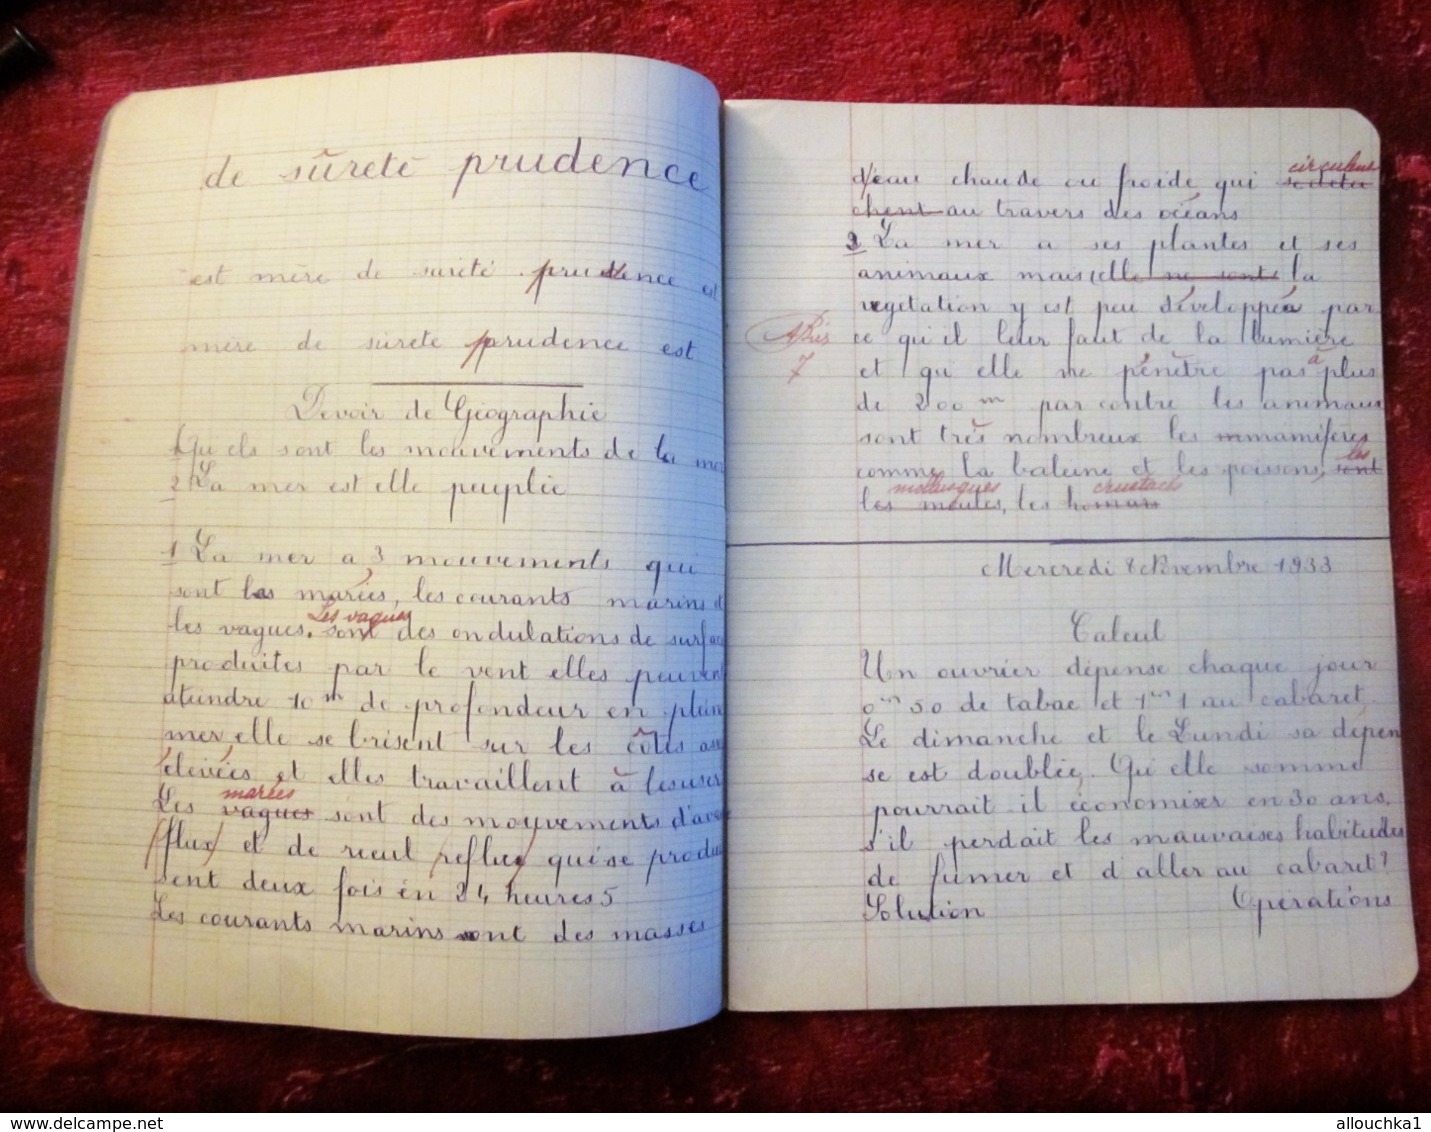 de sûreté prudence
est mère de sureté prudence est
mère de sûreté prudence est
Devoir de Géographie
1 Quels sont les mouvements de la mer
2 La mer est elle peuplée
1 La mer a 3 mouvements qui
sont les marées, les courants marins et
les vagues. Les vagues sont des ondulations de surface
produites par le vent elles peuvent
ateindre 10m de profondeur en pleine
mer elle se brisent sur les côtes
élevées et elles travaillent à les user
Les vagues marées sont des mouvements d'avan
(flux) et de recul (reflux) qui se produi
sent deux fois en 24 heures 5
Les courants marins sont des masses
d'eau chaude ou froide qui se dépla circulent
chent au travers des océans
2 La mer a ses plantes et ses
animaux mais elle ne sont la
végetation y est peu développéa par
ce qu'il leur faut de la lumière
et qu elle ne pénètre pas à plus
de 200 m par contre les animaux
sont très nombreux les mmamifères
comme la baleine et les poissons, sont les
les moules mollusques, les homars crustacés
7
Mercredi 8 Novembre 1933
Calcul
Un ouvrier dépense chaque jour
0 50 de tabac et 1 1 au cabaret
Le dimanche et le Lundi sa dépen
se est doublée. Qu elle somme
pourrait-il économiser en 30 ans,
s'il perdait les mauvaises habitudes
de fumer et d aller au cabaret?
Solution Opérations
www.delcampe.net
allouchka1